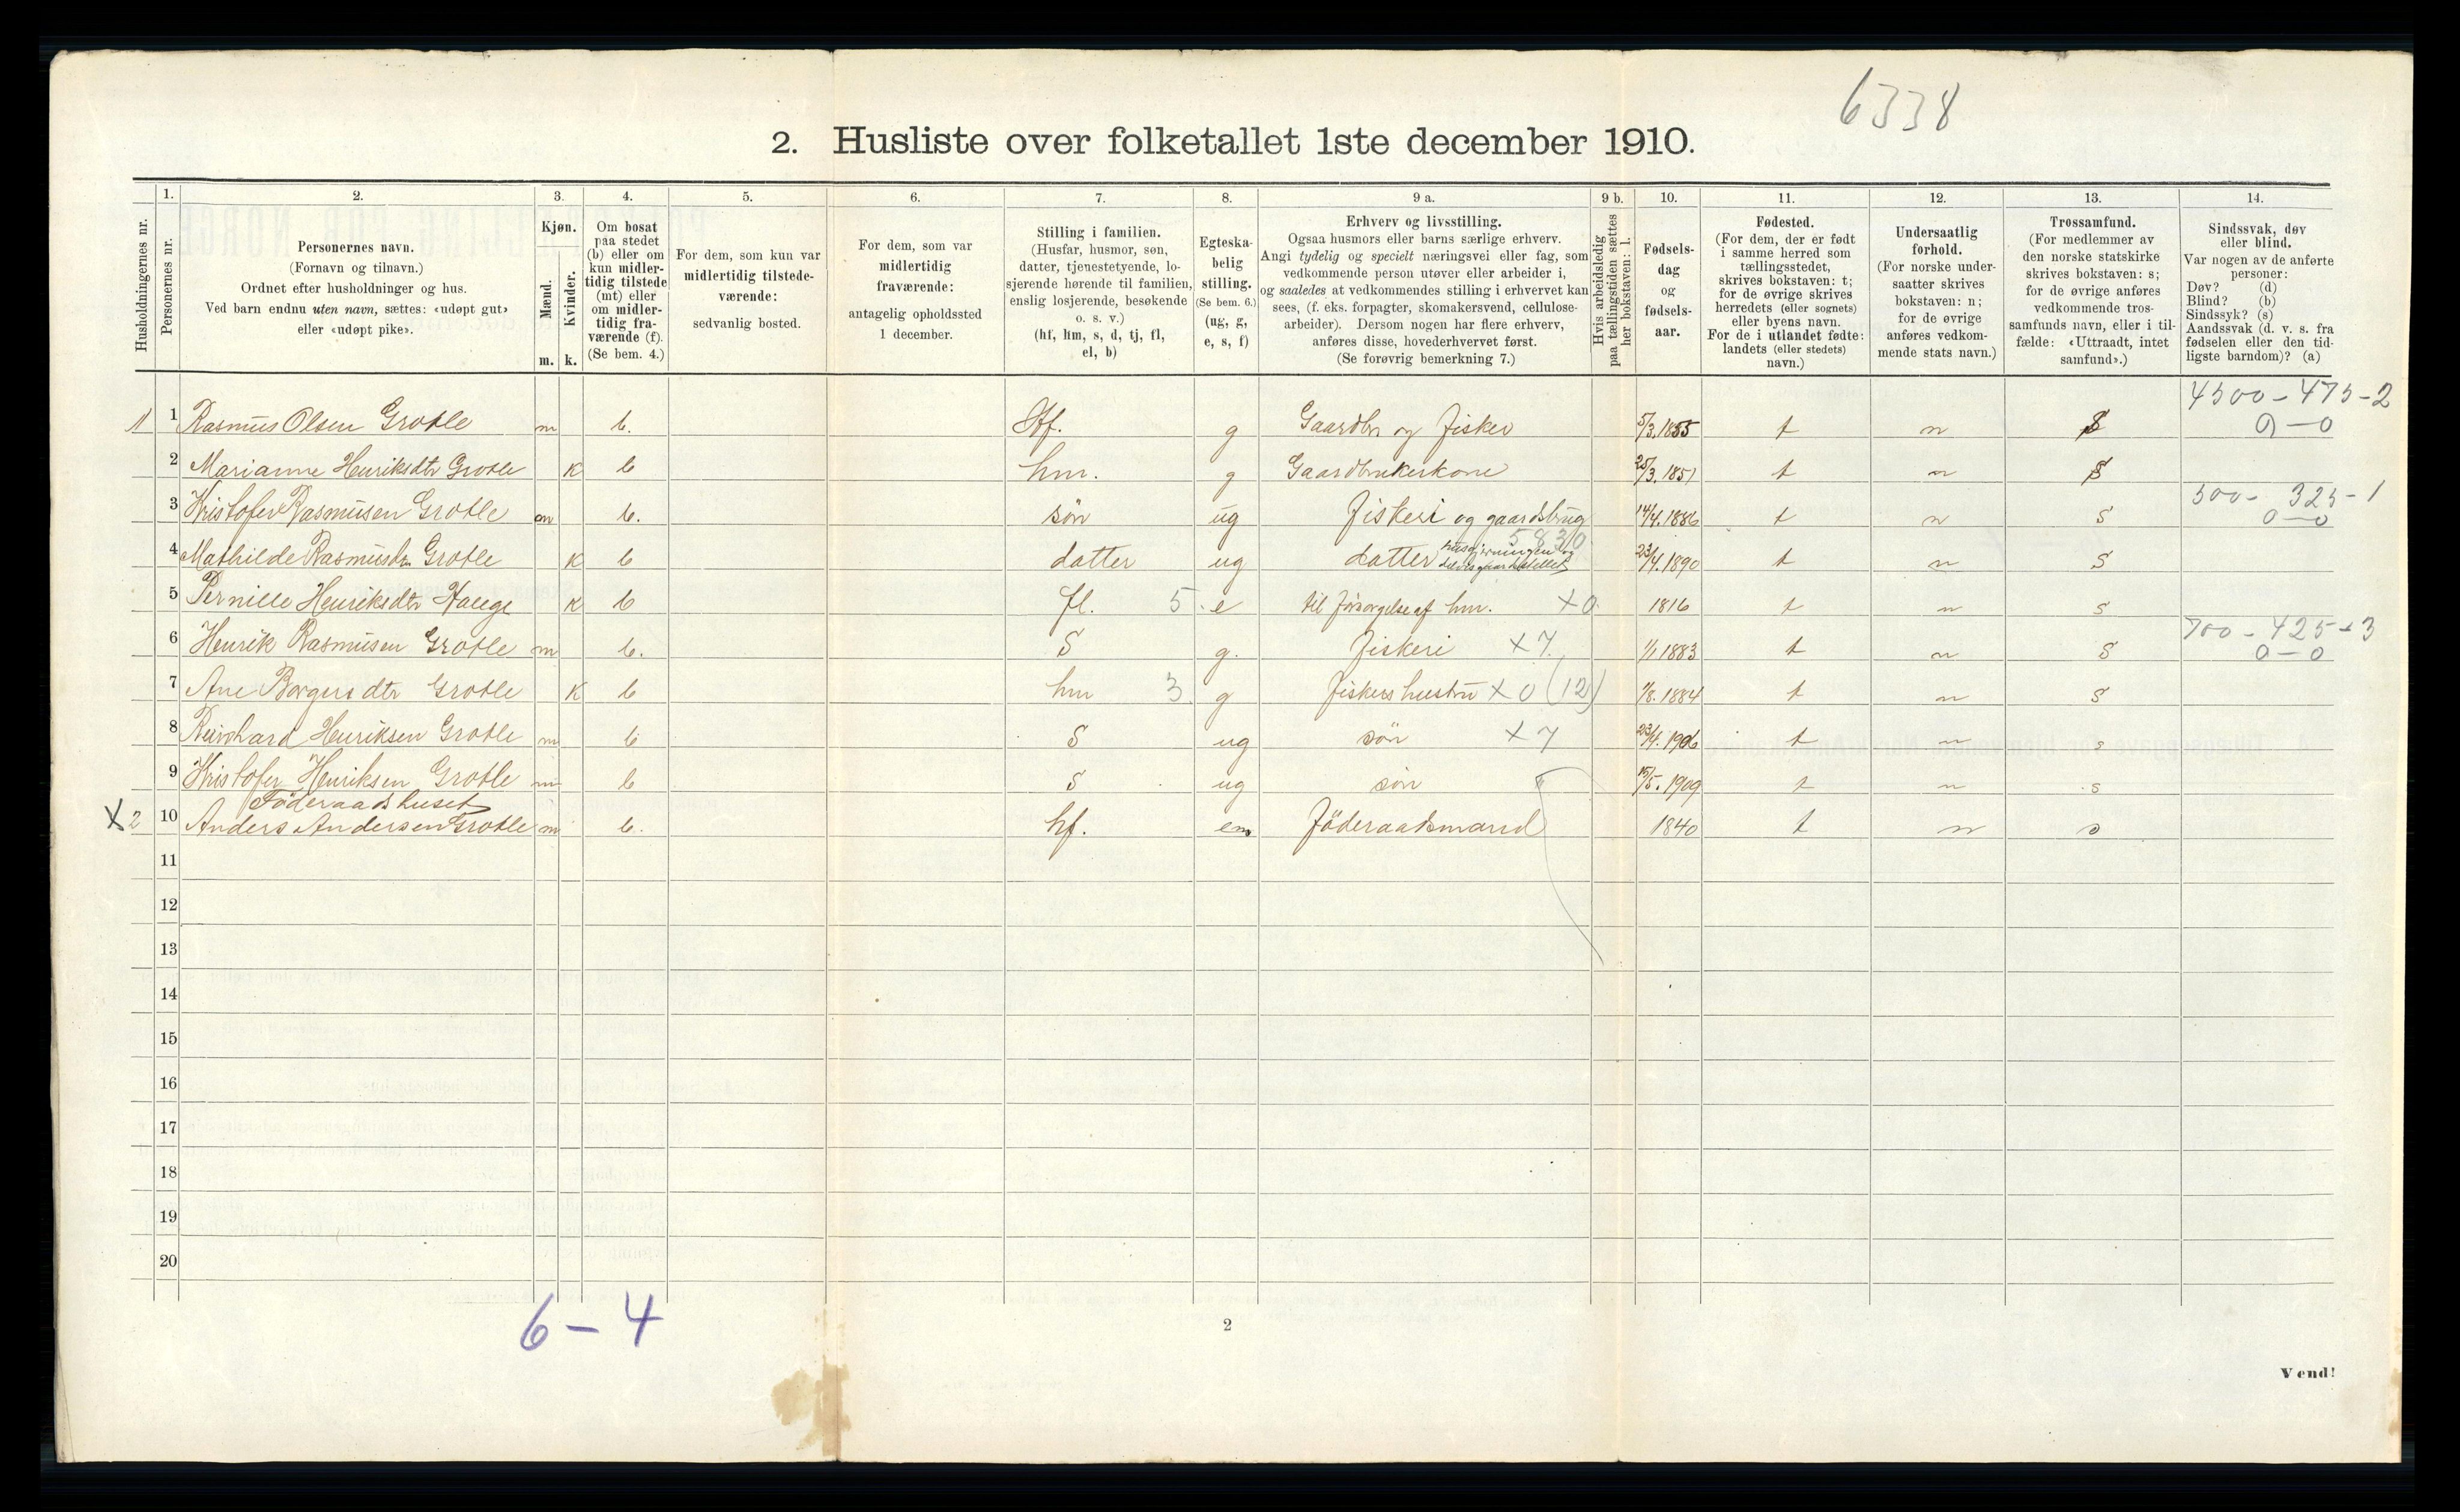 6338
2. Husliste over folketallet 1ste december 1910.
Husholdningernes nr.
1.
Personernes nr.
2.
Personernes navn.
(Fornavn og tilnavn.)
Ordnet efter husholdninger og hus.
Ved barn endnu uten navn, sættes: «udøpt gut»
eller «udøpt pike».
3.
Kjøn.
Mænd.
Kvinder.
m. k.
4.
Om bosat
paa stedet
(b) eller om
kun midler-
tidig tilstede
(mt) eller
om midler-
tidig fra-
værende (f).
(Se bem. 4.)
5.
For dem, som kun var
midlertidig tilstede-
værende:
sedvanlig bosted.
6.
For dem, som var
midlertidig
fraværende:
antagelig opholdssted
1 december.
7.
Stilling i familien.
(Husfar, husmor, søn,
datter, tjenestetyende, lo-
sjerende hørende til familien,
enslig losjerende, besøkende
o. s. v.)
(hf, hm, s, d, tj, fl,
el, b)
8.
Egteska-
belig
stilling.
(Se bem. 6.)
(ug, g,
e, s, f)
9 a.
Erhverv og livsstilling.
Ogsaa husmors eller barns særlige erhverv.
Angi tydelig og specielt næringsvei eller fag, som
vedkommende person utøver eller arbeider i,
og saaledes at vedkommendes stilling i erhvervet kan
sees, (f. eks. forpagter, skomakersvend, cellulose-
arbeider). Dersom nogen har flere erhverv,
anføres disse, hovederhvervet først.
(Se forøvrig bemerkning 7.)
9 b.
Hvis arbeidsledig
paa tællingstiden sættes
her bokstaven: l.
10.
Fødsels-
dag
og
fødsels-
aar.
11.
Fødested.
(For dem, der er født
i samme herred som
tællingsstedet,
skrives bokstaven: t;
for de øvrige skrives
herredets (eller sognets)
eller byens navn.
For de i utlandet fødte:
landets (eller stedets)
navn.)
12.
Undersaatlig
forhold.
(For norske under-
saatter skrives
bokstaven: n;
for de øvrige
anføres vedkom-
mende stats navn.)
13.
Trossamfund.
(For medlemmer av
den norske statskirke
skrives bokstaven: s;
for de øvrige anføres
vedkommende tros-
samfunds navn, eller i til-
fælde: «Uttraadt, intet
samfund».)
14.
Sindssvak, døv
eller blind.
Var nogen av de anførte
personer:
Døv? (d)
Blind? (b)
Sindssyk? (s)
Aandssvak (d. v. s. fra
fødselen eller den tid-
ligste barndom)? (a)
4500-475-2
1 1 Rasmus Olsen Grotle m b. Hf. g Gaardbr og fisker 5/3.1855 t n S 0-0
2 Marianne Henriksdtr Grotle k b hm. g Gaardbrukerkone 25/3.1851 t n S
500- 325-1
3 Kristofer Rasmusen Grotle m b. søn ug fiskeri og gaardsbrug 14/4.1886 t n S 0-0
5830
4 Mathilde Rasmusdtr Grotle k b datter ug datter husgjerningen og 23/4.1890 t n S
5 Pernille Henriksdtr Hauge k b fl. 5 e til forsørgelse af hm. x0 1816 t n s
700-425-3
6 Henrik Rasmusen Grotle m b. S g. fiskeri x7 1/1 1883 t n S 0-0
7 Ane Borgersdtr Grotle k b hm 3 g fiskers hustru x0 (12) 1/8.1884 t n s
8 Reinhard Henriksen Grotle m b S ug søn x7 23/4.1906 t n s
9 Kristofer Henriksen Grotle m b s ug søn 15/5.1909 t n s
Föderaadshuset
X2 10 Anders Andersen Grotle m b. hf. em föderaadsmand 1840 t n s
11
12
13
14
15
16
17
18
19
20
6-4
2
Vend!